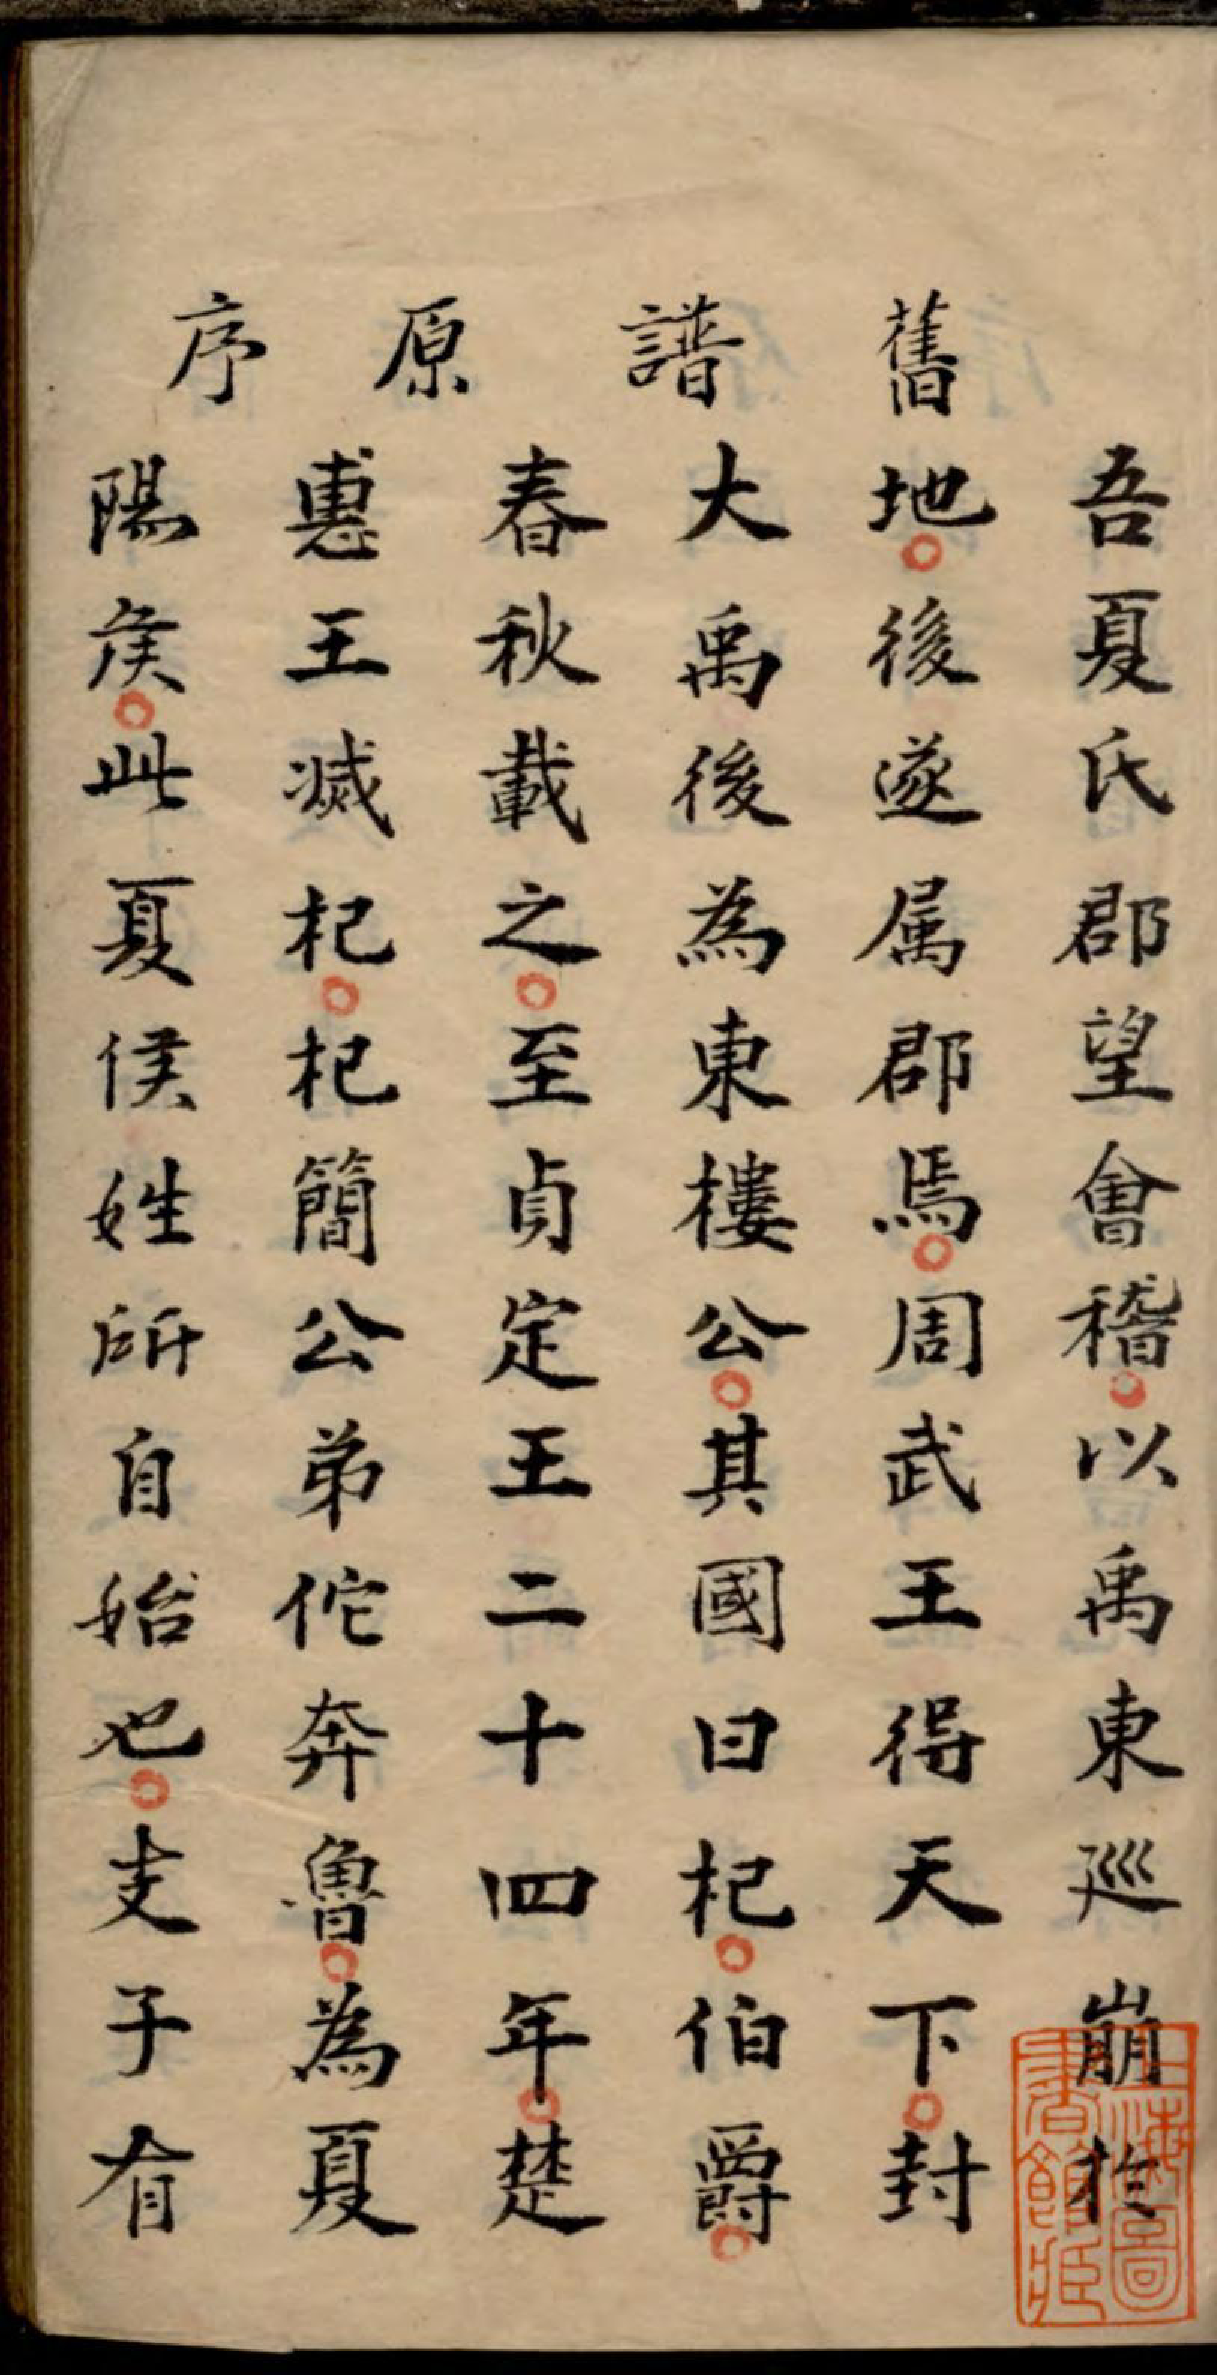 舊譜原序
吾夏氏郡望會稽以禹東廵崩於
地後遂属郡焉周武王得天下封
大禹後為東樓公其國曰杞伯爵
春秋載之至貞定王二十四年楚
惠王滅杞杞簡公弟佗奔魯為夏
陽侯此夏侯姓所自始也支子有
上海圖
書館藏